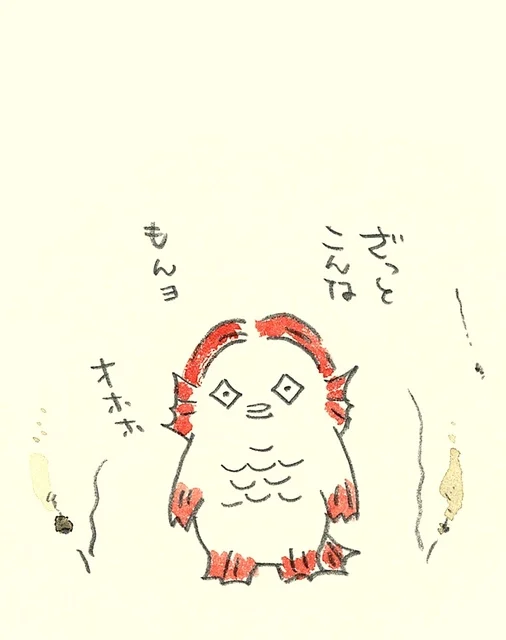 ざっと
こんな
もんヨ
オホホ